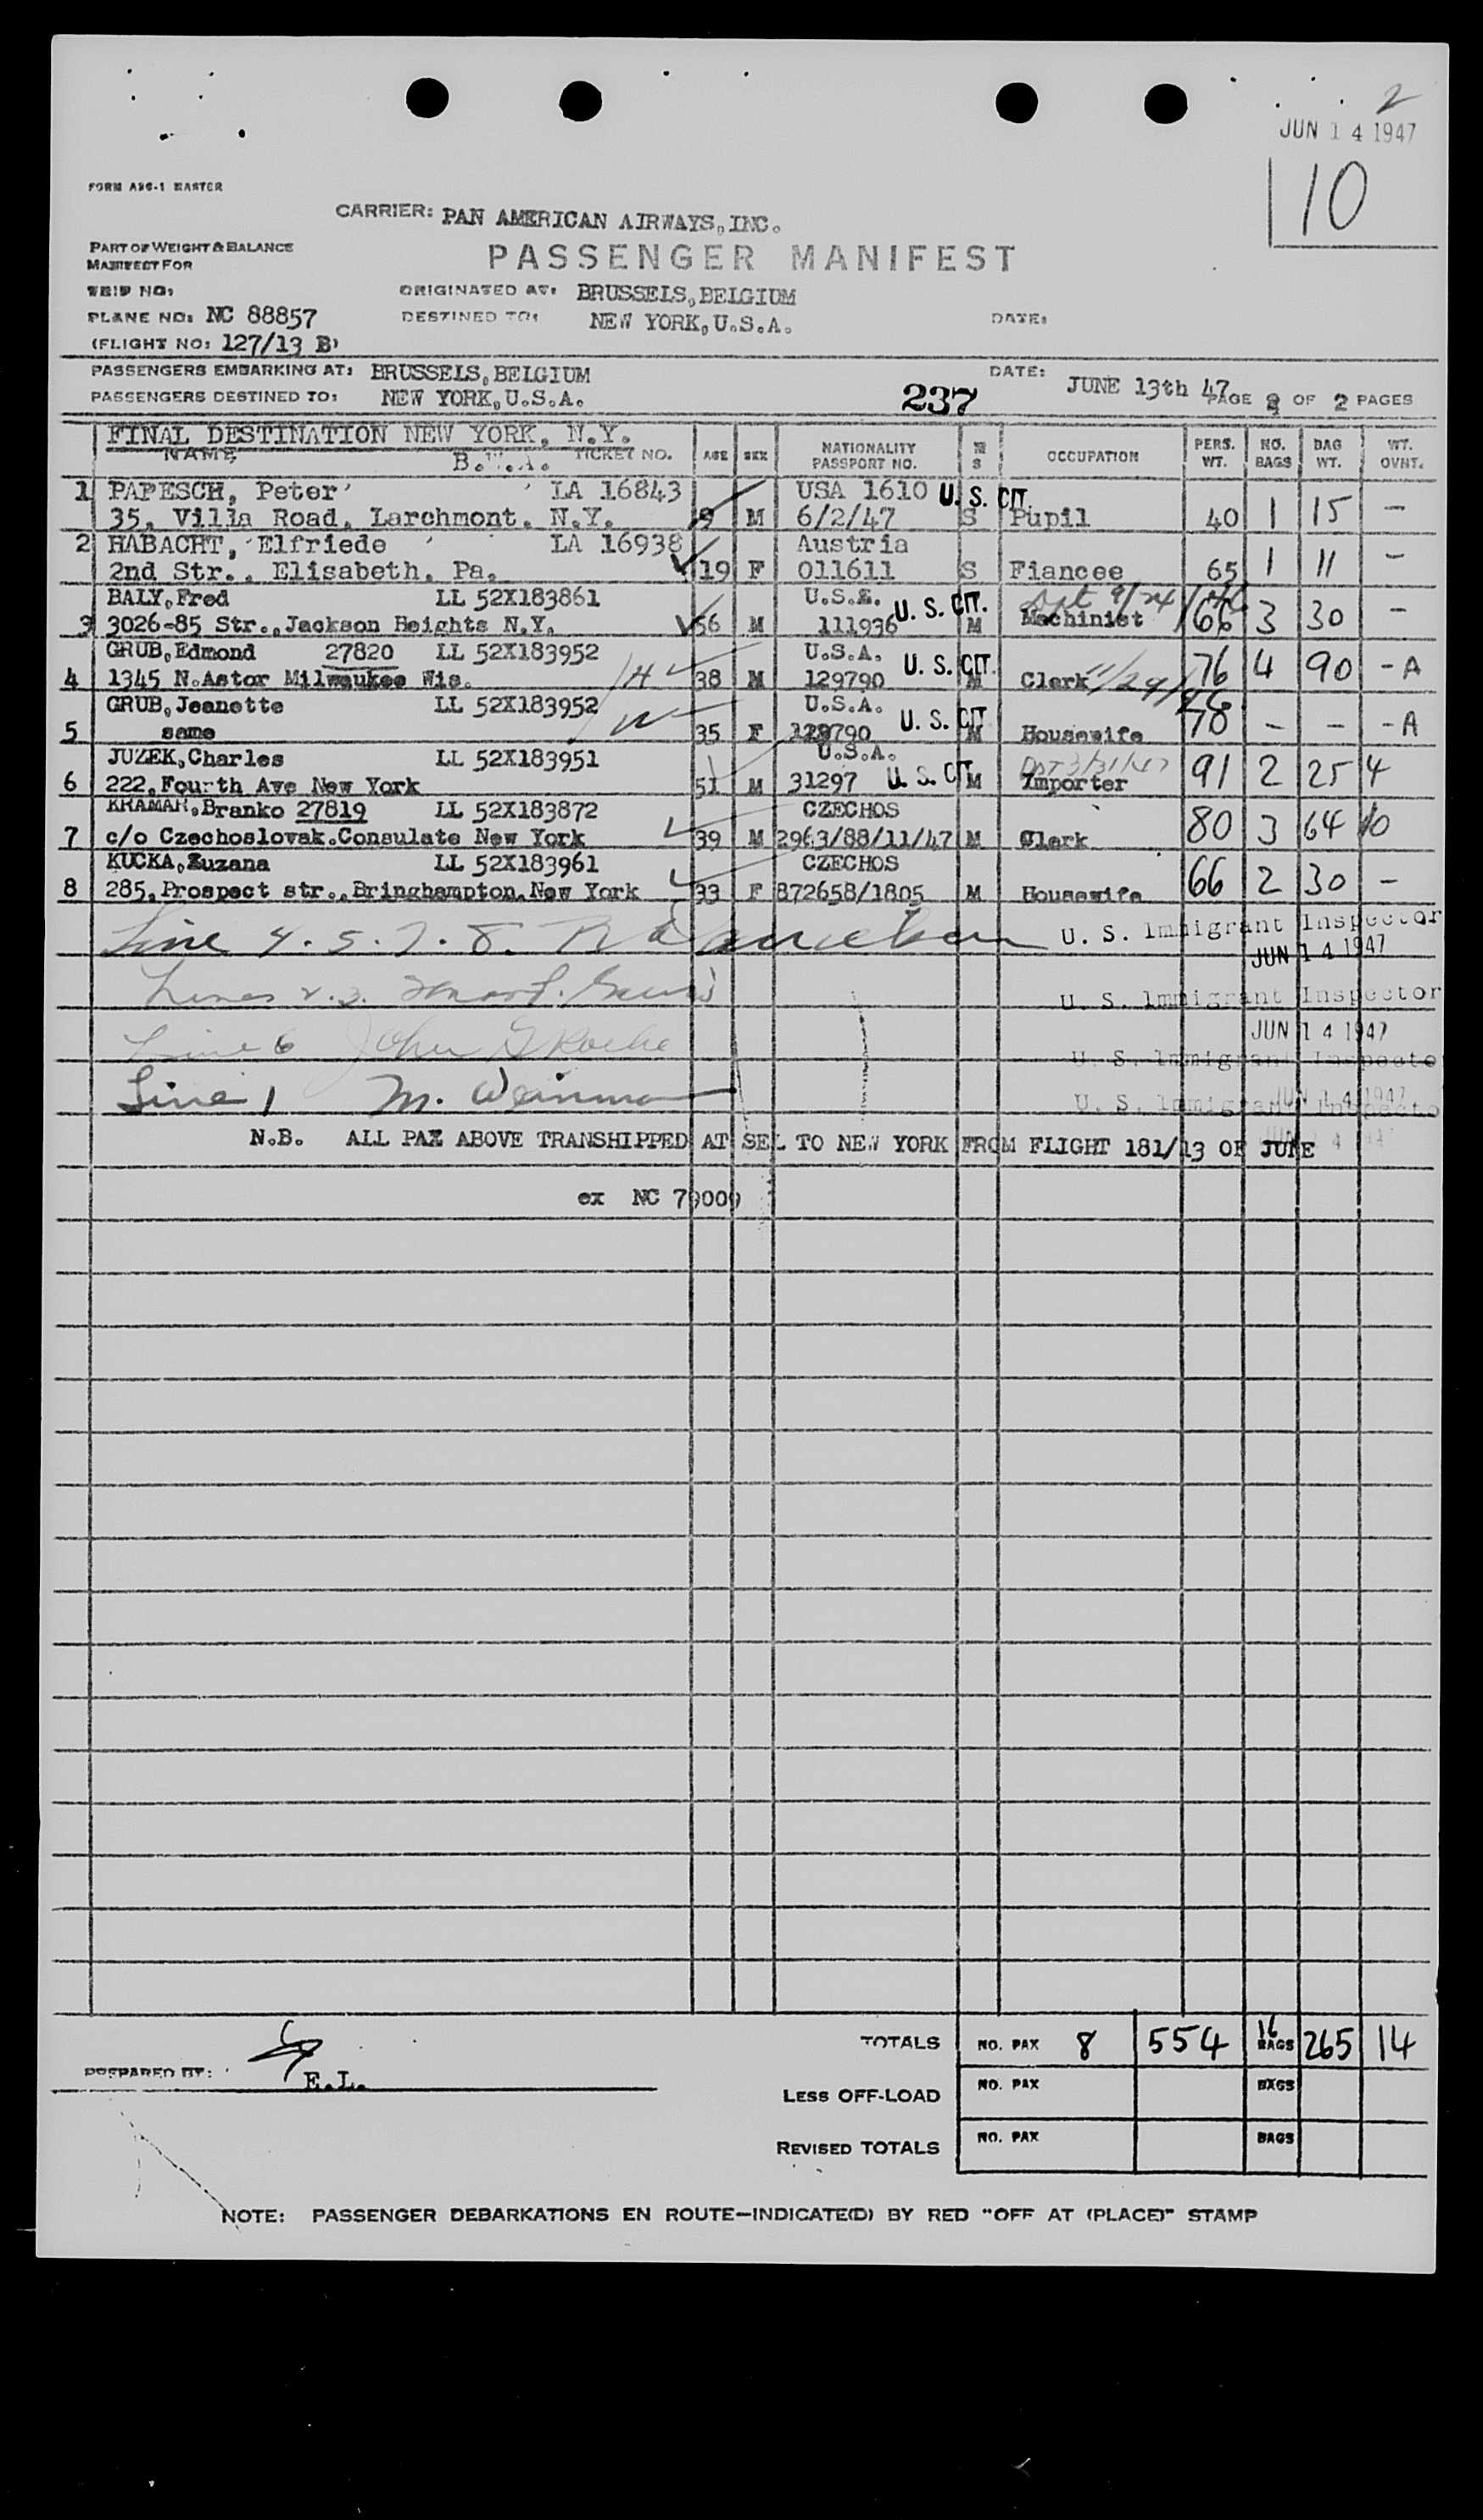 2
JUN 14 1947
10
FORM ABC-1 MASTER
CARRIER: PAN AMERICAN AIRWAYS, INC.
PART OF WEIGHT & BALANCE
MANIFEST FOR
PASSENGER MANIFEST
TRIP NO:
ORIGINATED AT: BRUSSELS, BELGIUM
PLANE NO: NC 88857
DESTINED TO: NEW YORK, U.S.A.
DATE:
(FLIGHT NO: 127/13 B)
PASSENGERS EMBARKING AT: BRUSSELS, BELGIUM
DATE: JUNE 13th 47
PASSENGERS DESTINED TO: NEW YORK, U.S.A.
237
PAGE 2 OF 2 PAGES
FINAL DESTINATION NEW YORK, N.Y.
NAME TICKET NO. AGE SEX NATIONALITY PASSPORT NO. M S OCCUPATION PERS. WT. NO. BAGS BAG WT. WT. OVHT.
1 PAPESCH, Peter LA 16843 USA 1610 U.S. CIT.
35, Villa Road, Larchmont, N.Y. 9 M 6/2/47 S Pupil 40 1 15 -
2 HABACHT, Elfriede LA 16938 Austria
2nd Str., Elisabeth, Pa. 19 F 011611 S Fiancee 65 1 11 -
BALY, Fred LL 52X183861 U.S.A. U.S. CIT.
3 3026-85 Str., Jackson Heights N.Y. 56 M 111936 M Machinist 66 3 30 -
GRUB, Edmond 27820 LL 52X183952 U.S.A. U.S. CIT.
4 1345 N.Astor Milwaukee Wis. 38 M 129790 M Clerk 76 4 90 - A
GRUB, Jeanette LL 52X183952 U.S.A. U.S. CIT.
5 same 35 F 129790 M Housewife 70 - - - A
JUZEK, Charles LL 52X183951 U.S.A. U.S. CIT.
6 222, Fourth Ave New York 51 M 31297 M Importer 91 2 25 4
KRAMAR, Branko 27819 LL 52X183872 CZECHOS
7 c/o Czechoslovak.Consulate New York 39 M 2963/88/11/47 M Clerk 80 3 64 10
KUCKA, Zuzana LL 52X183961 CZECHOS
8 285, Prospect str., Bringhampton, New York 33 F 872658/1805 M Housewife 66 2 30 -
Line 4. 5. 7. 8. U. S. Immigrant Inspector
JUN 14 1947
Lines 2. 3. U. S. Immigrant Inspector
Line 6 John JUN 14 1947
U. S. Immigrant Inspector
Line 1 M. JUN 14 1947
U. S. Immigrant Inspector
N.B. ALL PAX ABOVE TRANSHIPPED AT SEL TO NEW YORK FROM FLIGHT 181/13 OF JUNE
ex NC 79000
TOTALS NO. PAX 8 554 16 BAGS 265 14
PREPARED BY: E.L.
LESS OFF-LOAD NO. PAX BAGS
REVISED TOTALS NO. PAX BAGS
NOTE: PASSENGER DEBARKATIONS EN ROUTE—INDICATE(D) BY RED "OFF AT (PLACE)" STAMP